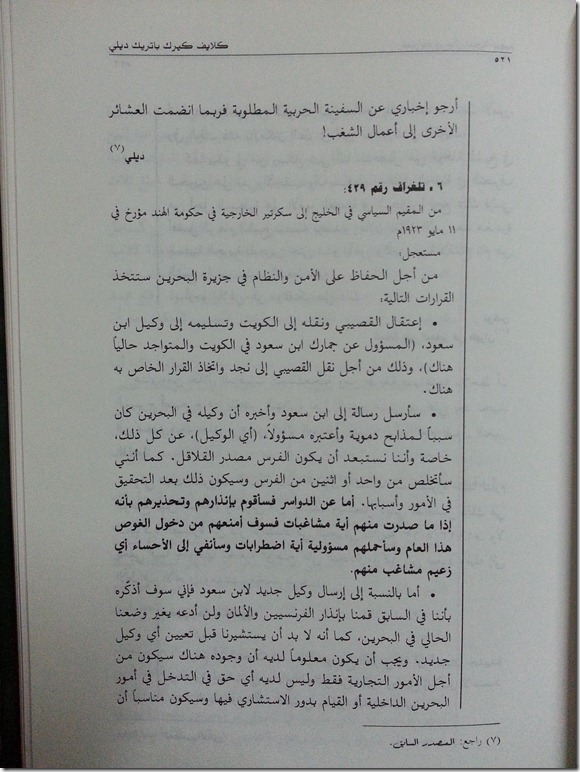 كلايف كيرك باتريك ديلي
٥٢١
أرجو إخباري عن السفينة الحربية المطلوبة فربما انضمت العشائر
الأخرى إلى أعمال الشغب!
ديلي(٧)
٦ ـ تلغراف رقم ٤٢٩:
من المقيم السياسي في الخليج إلى سكرتير الخارجية في حكومة الهند مؤرخ في
١١ مايو ١٩٢٣م
مستعجل:
من أجل الحفاظ على الأمن والنظام في جزيرة البحرين ستتخذ
القرارات التالية:
• إعتقال القصيبي ونقله إلى الكويت وتسليمه إلى وكيل ابن
سعود، (المسؤول عن جمارك ابن سعود في الكويت والمتواجد حالياً
هناك)، وذلك من أجل نقل القصيبي إلى نجد واتخاذ القرار الخاص به
هناك.
• سأرسل رسالة إلى ابن سعود وأخبره أن وكيله في البحرين كان
سبباً لمذابح دموية وأعتبره مسؤولاً، (أي الوكيل)، عن كل ذلك،
خاصة وأننا نستبعد أن يكون الفرس مصدر القلاقل. كما أنني
سأتخلص من واحد أو اثنين من الفرس وسيكون ذلك بعد التحقيق
في الأمور وأسبابها. أما عن الدواسر فسأقوم بإنذارهم وتحذيرهم بأنه
إذا ما صدرت منهم أية مشاغبات فسوف أمنعهم من دخول الغوص
هذا العام وسأحملهم مسؤولية أية اضطرابات وسأنفي إلى الأحساء أي
زعيم مشاغب منهم.
• أما بالنسبة إلى إرسال وكيل جديد لابن سعود فإني سوف أذكّره
بأننا في السابق قمنا بإنذار الفرنسيين والألمان ولن أدعه يغير وضعنا
الحالي في البحرين، كما أنه لا بد أن يستشيرنا قبل تعيين أي وكيل
جديد. ويجب أن يكون معلوماً لديه أن وجوده هناك سيكون من
أجل الأمور التجارية فقط وليس لديه أي حق في التدخل في أمور
البحرين الداخلية أو القيام بدور الاستشاري فيها وسيكون مناسباً أن
(٧) راجع: المصدر السابق.